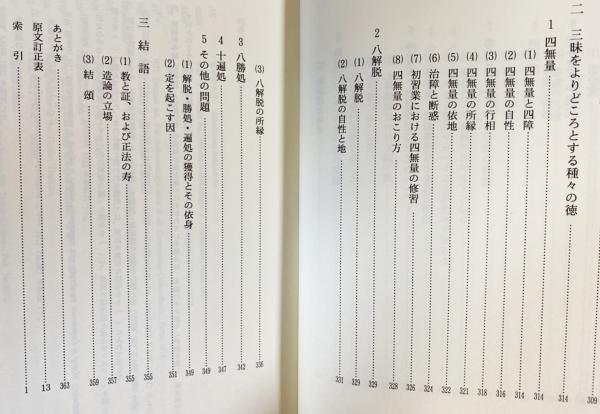 309
二 三昧をよりどころとする種々の徳 314
1 四無量 314
(1) 四無量と四障 314
(2) 四無量の自性 316
(3) 四無量の行相 318
(4) 四無量の所縁 321
(5) 四無量の依地 322
(6) 治障と断惑 324
(7) 初習業における四無量の修習 326
(8) 四無量のおこり方 328
2 八解脱 329
(1) 八解脱 329
(2) 八解脱の自性と地 331
(3) 八解脱の所縁 336
3 八勝処 342
4 十遍処 347
5 その他の問題 349
(1) 解脱・勝処・遍処の獲得とその依身 349
(2) 定を起こす因 351
三 結語 355
(1) 教と証、および正法の寿 355
(2) 造論の立場 357
(3) 結頌 359
あとがき 363
原文訂正表 13
索引 1